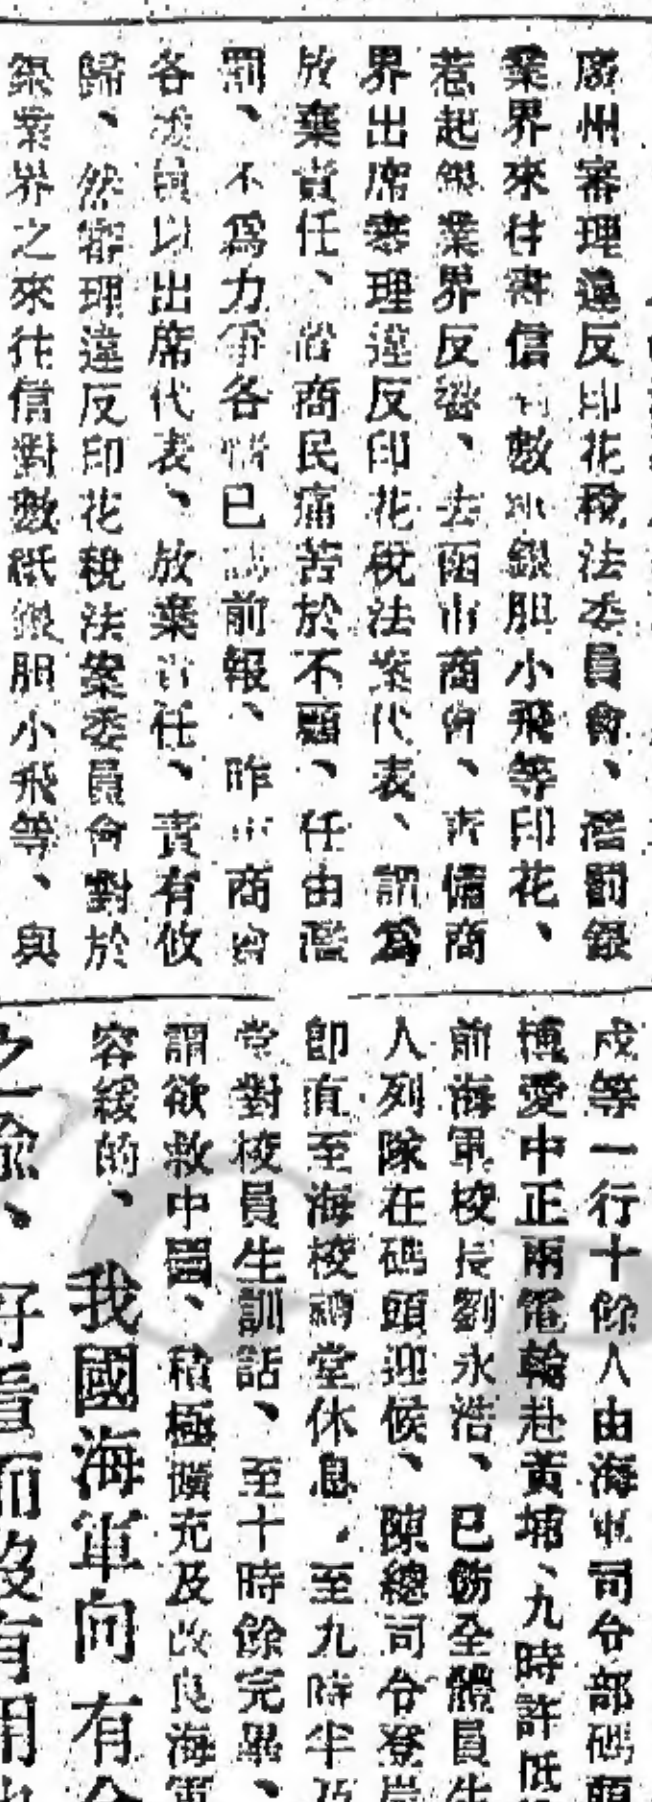 廣州審理違反印花稅法委員會、濫罰銀
業界來往書信對數紙銀胆小飛等印花、
惹起銀業界反響、去函市商會、責備商
界出席審理違反印花稅法案代表、謂為
放棄責任、置商民痛苦於不顧、任由濫
罰、不為力爭各情已誌前報、昨市商會
各委員以出席代表、放棄責任、責有攸
歸、然審理違反印花稅法案委員會對於
銀業界之來往信對數紙銀胆小飛等、與
成等一行十餘人由海軍司令部碼頭
博愛中正兩電輪赴黃埔、九時許抵
前海軍校長劉永浩、已飭全體員生
人列隊在碼頭迎候、陳總司令登岸
即直至海校禮堂休息、至九時半
堂對校員生訓話、至十時餘完畢、
謂欲救中國、積極擴充及改良海軍
容緩的、我國海軍向有
之喻、好看而沒有用